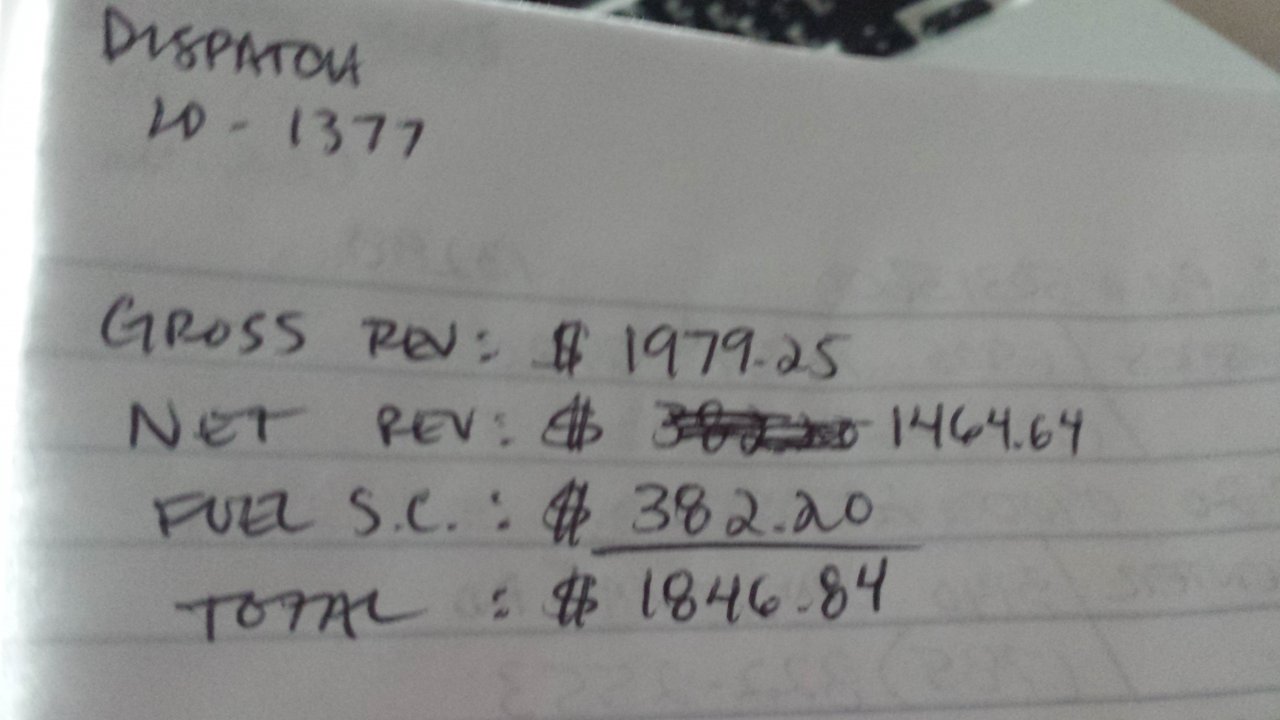 DISPATCH
20-1377
GROSS REV: $ 1979.25
NET REV: $ 1464.64
FUEL S.C.: $ 382.20
TOTAL : $ 1846.84